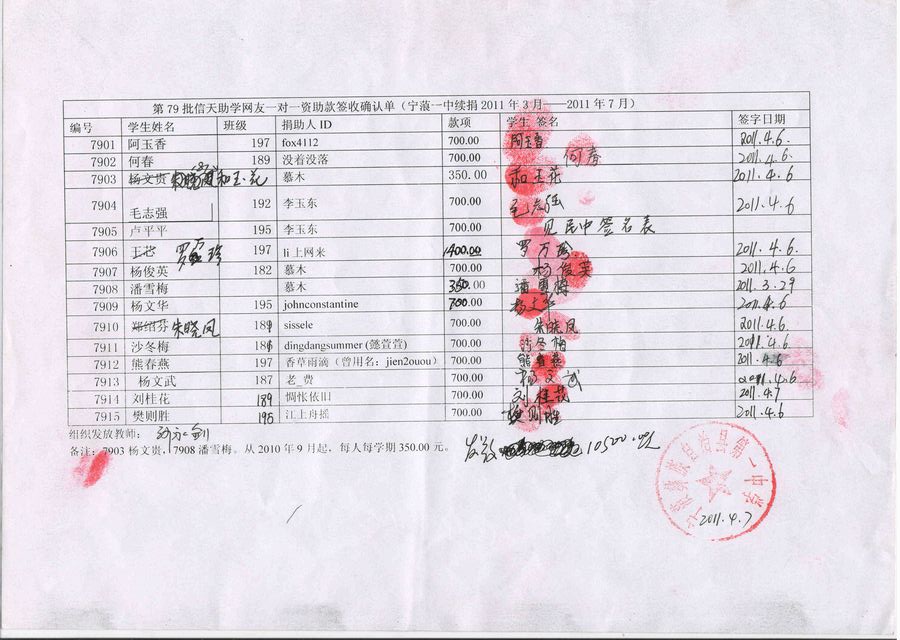 第 79 批信天助学网友一对一资助款签收确认单（宁蒗一中续捐 2011 年 3 月——2011 年 7 月）
编号 学生姓名 班级 捐助人 ID 款项 学生 签名 签字日期
7901 阿玉香 197 fox4112 700.00 阿玉香 2011.4.6.
7902 何春 189 没着没落 700.00 何春 2011.4.6.
7903 杨文贵 和玉花 慕木 350.00 和玉花 2011.4.6
7904 毛志强 192 李玉东 700.00 毛志强 2011.4.6
7905 卢平平 195 李玉东 700.00 见民中签名表
7906 王芯 罗万珍 197 li 上网来 1400.00 罗万珍 2011.4.6.
7907 杨俊英 182 慕木 700.00 杨俊英 2011.4.6
7908 潘雪梅 慕木 350.00 潘雪梅 2011.3.29
7909 杨文华 195 johnconstantine 700.00 杨文华 2011.4.6
7910 朱晓凤 189 sissele 700.00 朱晓凤 2011.4.6
7911 沙冬梅 186 dingdangsummer (懿萱萱) 700.00 沙冬梅 2011.4.6
7912 熊春燕 197 香草雨滴（曾用名：jien2ouou） 700.00 熊春燕 2011.4.6
7913 杨文武 187 老_费 700.00 杨文武 2011.4.6
7914 刘桂花 189 惆怅依旧 700.00 刘桂花 2011.4.7
7915 樊则胜 195 江上舟摇 700.00 樊则胜 2011.4.6
组织发放教师：
备注：7903 杨文贵，7908 潘雪梅。从 2010 年 9 月起，每人每学期 350.00 元。 发放 10500.
彝族自治县第一中学
2011.4.7